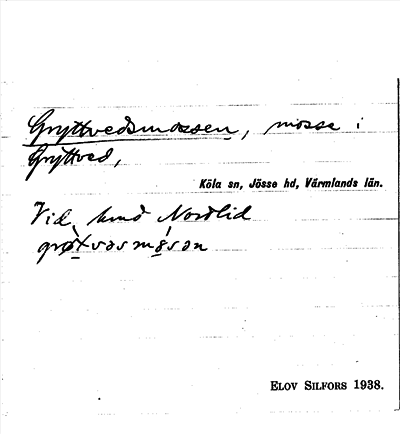 Gryttvedsmossen, mosse i
Gryttved,
Köla sn, Jösse hd, Värmlands län.
Vid Nordlid
ELOV SILFORS 1938.